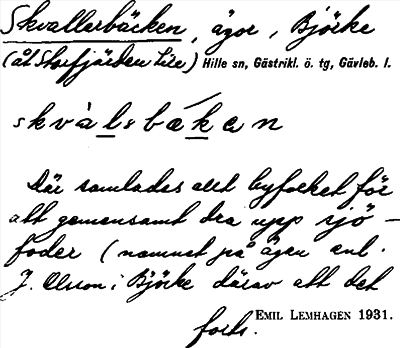 Skvallerbäcken, ägor, Björke
(åt Storfjärden Lise) Hille sn, Gästrikl. ö. tg, Gävleb. l.
skvàlsbækan
Där samlades allt byfolket för
att gemensamt dra upp sjö-
foder (namnet på ägan enl.
J. Olsson i Björke därav att det
forts.
EMIL LEMHAGEN 1931.